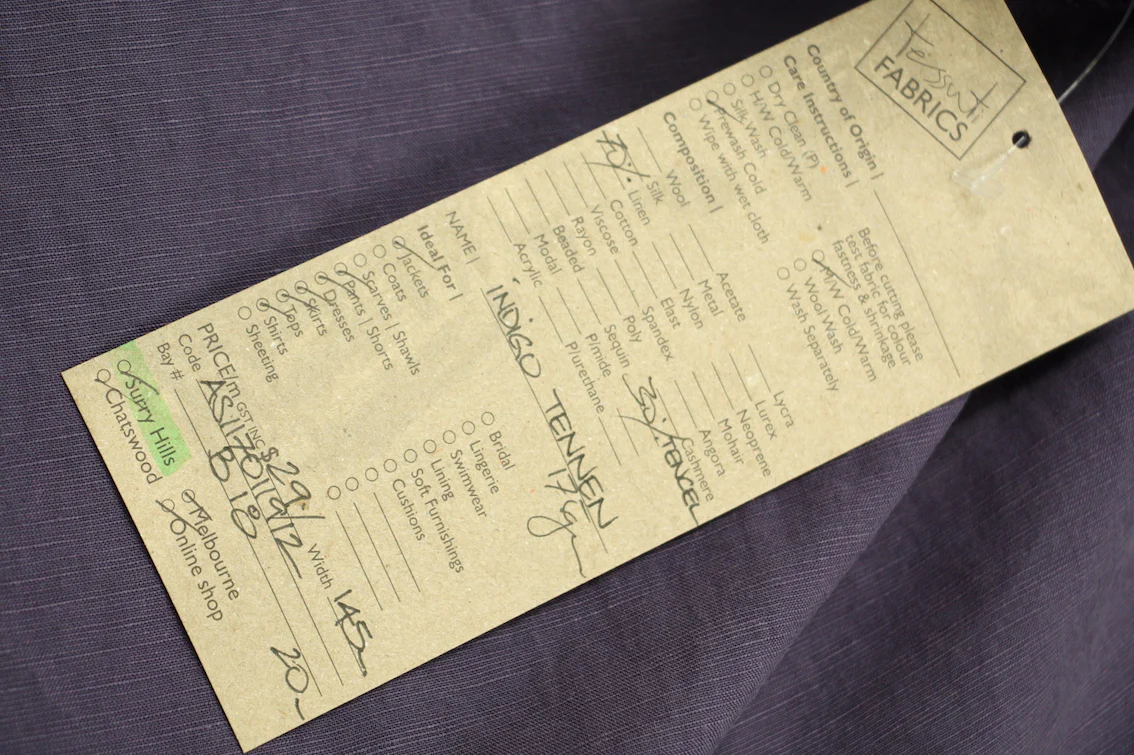 tessuti
FABRICS
Country of Origin |
Care Instructions |
Dry Clean (P)
H/W Cold/Warm
Silk Wash
Prewash Cold
Wipe with wet cloth
Before cutting please
test fabric for colour
fastness & shrinkage
H/W Cold/Warm
Wool Wash
Wash Separately
Composition |
Wool
Silk
70% Linen
Cotton
Viscose
Rayon
Beaded
Modal
Acrylic
Acetate
Metal
Nylon
Elast
Spandex
Poly
Sequin
Pimide
Plurethane
Lycra
Lurex
Neoprene
Mohair
Angora
Cashmere
TENCEL
NAME | INDIGO TENNEN
Ideal For |
Jackets
Coats
Scarves | Shawls
Pants | Shorts
Dresses
Skirts
Tops
Shirts
Sheeting
Bridal
Lingerie
Swimwear
Lining
Soft Furnishings
Cushions
PRICE/m GST INC $29 Width 145
Code AS1170119/12
Bay # B10 20
Surry Hills
Chatswood
Melbourne
Online shop